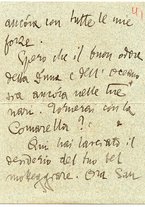 ancóra con tutte le mie
forze.
Spero che il buon odore
della Duna e dell' Oceano
sia ancóra nelle tue
nari. Tornerai con la
Comarella?
Qui hai lasciato il
desiderio del tuo bel
motteggiare. Ora San